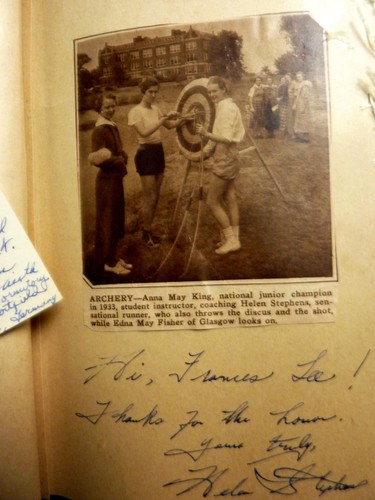 ARCHERY—Anna May King, national junior champion
in 1933, student instructor, coaching Helen Stephens, sen-
sational runner, who also throws the discus and the shot,
while Edna May Fisher of Glasgow looks on.
Hi, Frances Lee!
Thanks for the honor.
Yours truly,
Helen Stephens